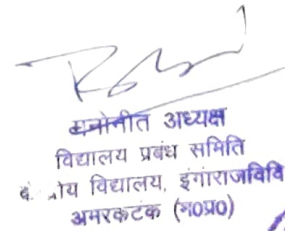 मनोनीत अध्यक्ष
विद्यालय प्रबंध समिति
विद्यालय, इंगांराजविवि
अमरकंटक (म०प्र०)